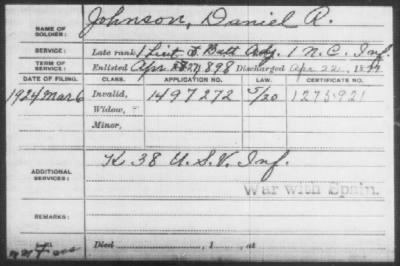 NAME OF SOLDIER: Johnson, Daniel R.
SERVICE: Late rank, 1 Lieut & Batt Adj. 1 N.C. Inf.
TERM OF SERVICE: Enlisted Apr 27, 1898 Discharged Apr 22, 1899
DATE OF FILING. CLASS. APPLICATION NO. LAW. CERTIFICATE NO.
1924 Mar 6 Invalid, 1497272 5/20 1273921
Widow,
Minor,
ADDITIONAL SERVICES: K 38 U.S.V. Inf.
War with Spain.
REMARKS:
Died , 1 , at